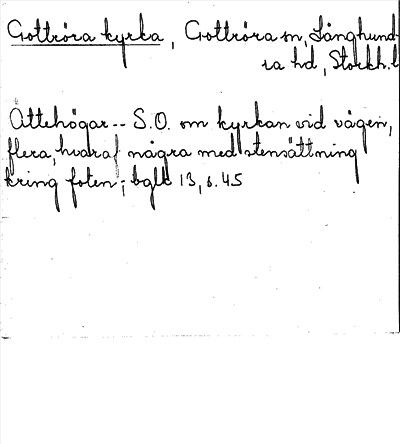 Gottröra kyrka, Gottröra sn, Långhund-
ra hd, Stockh. l
Ättehögar -- S.O. om kyrkan vid vägen,
flera, hvaraf några med stensättning
kring foten; bglt 13, s. 45